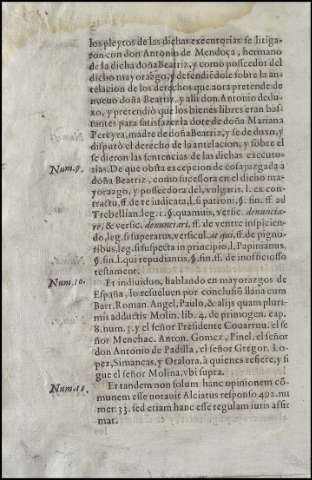 los pleytos de las dichas executorias se litiga-
ron con don Antonio de Mendoça, hermano
de la dicha doña Beatriz, y como posseedor del
dicho mayorazgo, y defendiẽdole sobre la an-
telacion de los derechos que aora pretende de
nueuo doña Beatriz, y alli don Antonio dedu-
xo, y pretendiò que los bienes libres eran bas-
tantes para satisfazer la dote de doña Mariana
Pereyra, madre de doña Beatriz, y se deduxo, y
disputò el derecho de la antelacion, y sobre el
se dieron las sentencias de las dichas executo-
Num.9. rias. De que obsta excepcion de cosa juzgada a
doña Beatriz, como sucessora en el dicho ma-
yorazgo, y posseedora del, vulgaris. l. ex con-
tractu, ff. de re iudicata, l. si patroni, §. fin. ff. ad
Trebellian. leg. 1. §. quamuis, versic. denuncia-
re, & versic. denunciari. ff. de ventre inspicien-
do, leg. si superatus, versicul. at qui, ff. de pigno-
ribus, leg. si suspecta in principio, l. Papinianus.
§. fin. l. qui repudiantis, §. fin. ff. de inofficioso
testament.
Num.10. Et indiuiduo, hablando en mayorazgos de
España, lo resueluen por conclusiõ llana cum
Bart. Roman. Angel, Paulo, & alijs quam pluri-
mis adductis Molin. lib. 4. de primogen. cap.
8. num. 3. y el señor Presidente Couarruu. el se
ñor Menchac. Anton. Gomez, Pinel, el señor
don Antonio de Padilla, el señor Gregor. Lo-
pez, Simancas, y Otalora, à quienes refiere, y si
gue el señor Molina, vbi supra.
Num.11. Et tandem non solum hanc opinionem cõ-
munem esse notauit Alciatus responso 492. nu
mer. 33. sed etiam hanc esse regulam iuris affir
mat.